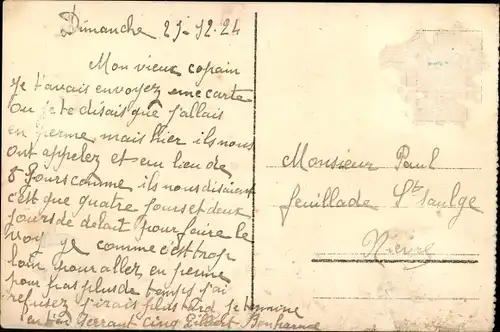 Dimanche 21-12-24
Mon vieux copain
je t'avais envoyez une carte
ou je te disais que j'allais
en perme mais hier ils nous
ont appelez et en lieu de
8 jours comme ils nous disaient
c'est que quatre jours et deux
jours de delait pour faire le
voyage comme c'est trop
loin pour allez en perme
pour pas plus de temps j'ai
refusez j'irais plus tard je termine
en serrant cinq
Monsieur Paul
feuillade St Saulge
Nievre